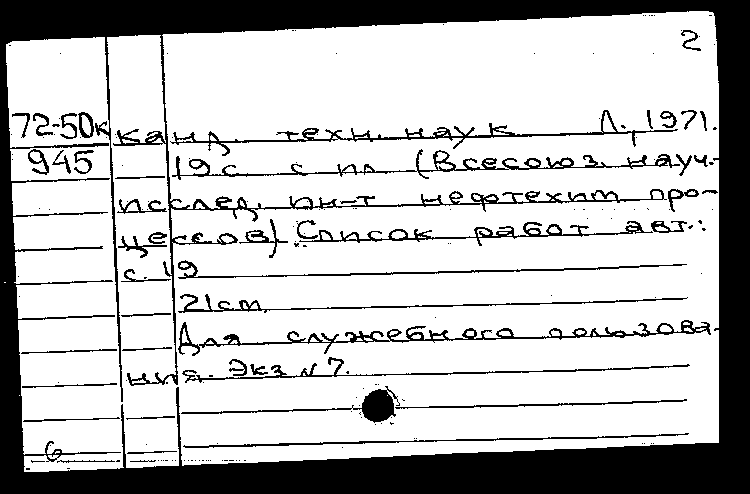 2
72-50к канд. техн. наук Л., 1971.
945 19с с ил (Всесоюз. науч.-
исслед. ин-т нефтехим про-
цессов) Список работ авт.:
с. 19
21см.
Для служебного пользова-
ния. Экз N 7.
6